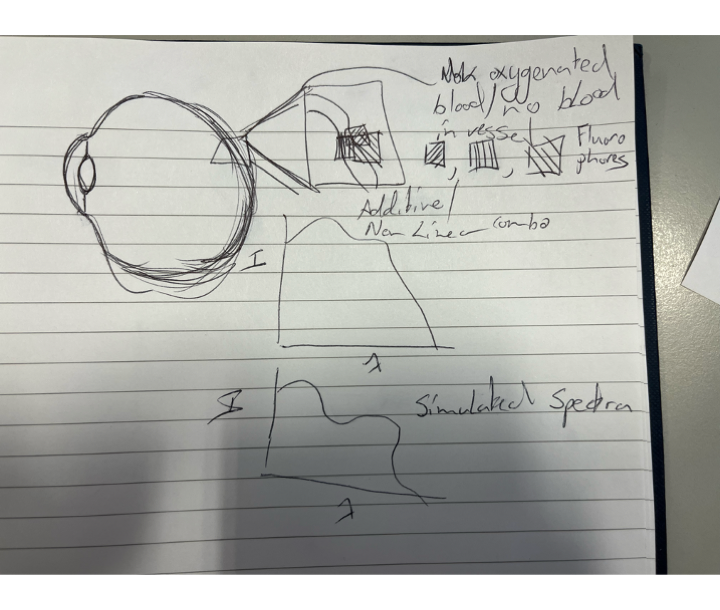 oxygenated
blood/no blood
in vessel
Fluoro
phores
Additive/
Non Linear combo
I
λ
I
Simulated Spectra
λ